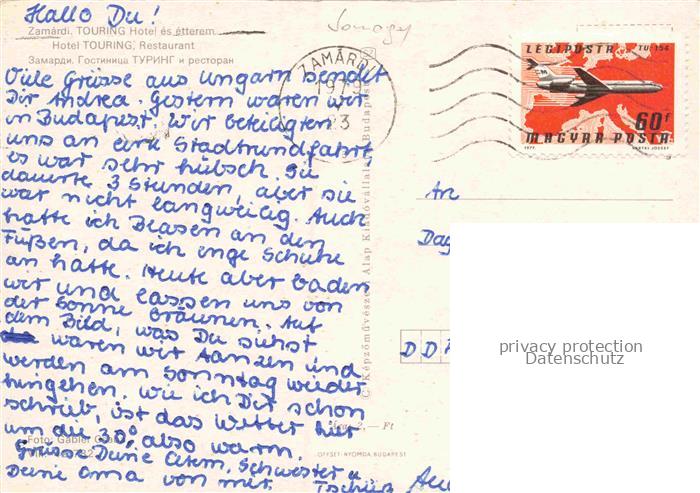 Hallo Du!
Somogy
Zamárdi, TOURING Hotel és étterem
Hotel TOURING, Restaurant
Замарди. Гостиница ТУРИНГ и ресторан
Viele Grüsse aus Ungarn sendet
Dir Andrea. Gestern waren wir
in Budapest. Wir beteiligten
uns an eine Stadtrundfahrt,
es war sehr hübsch. Sie
dauerte 3 Stunden, aber sie
war nicht langweilig. Auch
hatte ich Blasen an den
Füßen, da ich enge Schuhe
an hatte. Heute aber baden
wir und lassen uns von
der Sonne bräunen. Auf
dem Bild, was Du siehst
waren wir tanzen und
werden am Sonntag wieder
hingehen. Wie ich Dir schon
schrieb, ist das Wetter hier
um die 30° also warm.
Grüsse Deine Eltern, Schwester u.
Deine Oma von mir. Tschüß
Foto: Gábler
ZAMÁRDI
1979
23
LÉGIPOSTA TU-154
60f
MAGYAR POSTA
1977
An
Dag
DDR
© Képzőművészeti Alap Kiadóvállalata, Budapest
Ára: 2,— Ft
OFFSET-NYOMDA, BUDAPEST
privacy protection
Datenschutz